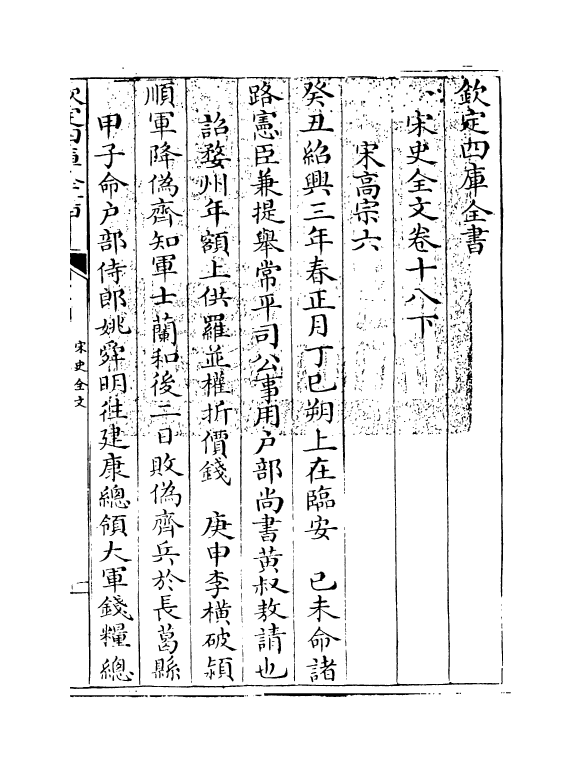 欽定四庫全書
宋史全文卷十八下
宋高宗六
癸丑紹興三年春正月丁巳朔上在臨安　已未命諸
路憲臣兼提舉常平司公事用户部尚書黄叔敖請也
詔婺州年額上供羅並權折價錢　庚申李橫破潁
順軍降偽齊知軍士蘭和後二日敗偽齊兵於長葛縣
甲子命户部侍郎姚舜明徃建康總領大軍錢糧總
欽定四庫全書
宋史全文